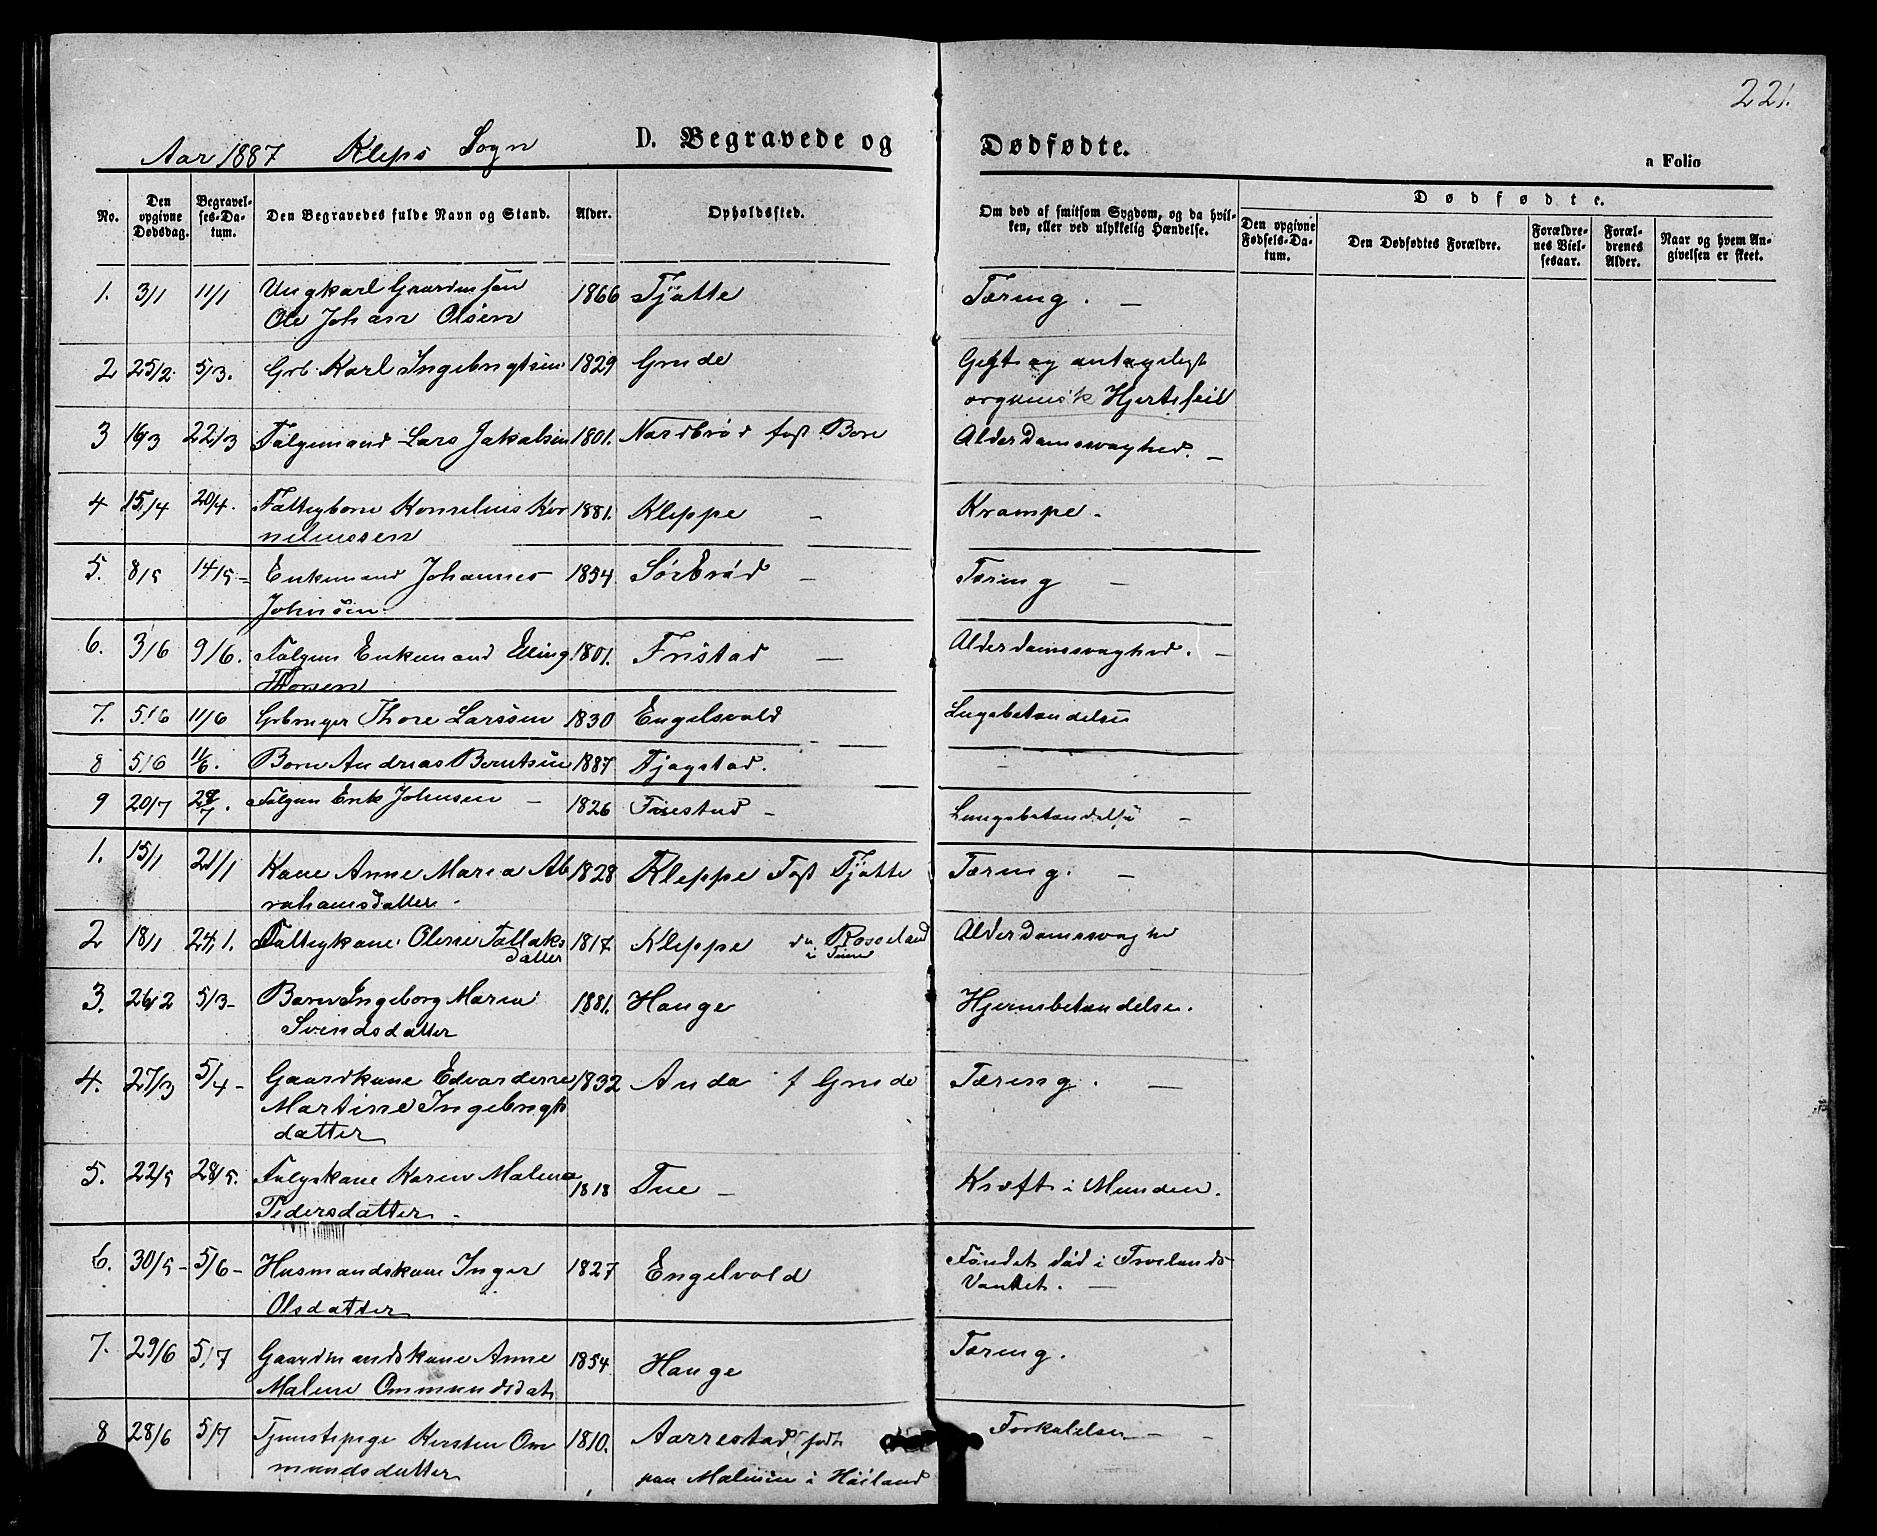 221.
Aar 1887 Kleps Sogn D. Begravede og Dødfødte.
a Folio
No. Den opgivne Dødsdag. Begravelses-Datum. Den Begravedes fulde Navn og Stand. Alder. Opholdssted. Om død af smitsom Sygdom, og da hvilken, eller ved ulykkelig Hændelse. Dødfødte.
Den opgivne Fødsels-Datum. Den Dødfødtes Forældre. Forældrenes Vielsesaar. Forældrenes Alder. Naar og hvem Angivelsen er skeet.
1. 3/1 11/1 Ungkarl Gaardmsøn 1866 Tjøtte Tæring. —
Ole Johan Olsen
2 25/2. 5/3. Grb. Karl Ingebrigtsen 1829 Grude Gigt og antageligt
organisk Hjertefeil
3 16/3 22/3 Følgemand Lars Jakobsen 1801. Nordbrød født Bore Alderdomssvaghed. —
4 15/4 20/4. Fattigbarn Kornelius Kor 1881. Kleppe — Krampe.
neliussen
5. 8/5 14/5 Enkemand Johannes 1854. Sørbrød — Tæring —
Johnsen.
6. 3/6 9/6. Følgem Enkemand Elling 1801. Fristad — Alderdomssvaghed. —
Thorsen
7. 5/6 11/6 Grbruger Thore Larssen 1830 Engelsvold Lugebetændelse
8 5/6 11/6. Barn Andreas Berntsen 1887 Tjøgstad. —
9 20/7 28/7. Følgem Erik Johnsen — 1826 Friestad — Lungebetændelse —
1. 15/1 21/1 Kone Anne Maria Ab 1828 Kleppe Født Tjøtte Tæring. —
rahamsdatter.
2 18/1 24/1. Fattigkone Olene Tollaks 1817. Kleppe Rosseland Alderdomssvaghed
datter i Time
3. 26/2 5/3 - Barn Ingeborg Maria 1881. Hauge Hjernebetændelse.
Svendsdatter
4. 27/3 5/4 - Gaardkone Edvardine 1832 Anda f Grude Tæring. —
Martine Ingebrigts
datter
5. 22/5 28/5. Følgskone Karen Malena 1818 Tue — Kræft i Munden.
Pedersdatter. -
6. 30/5 - 5/6 - Husmandskone Inger 1827 Engelvold Fundet død i Frøilands
Olsdatter Vandet. —
7. 29/6 5/7 Gaardmandskone Anne 1854 Hauge Tæring.
Malene Ommundsdat
8 28/6 5/7 Tjenestepige Kirsten Om 1810. Aarrestad, født Forkjølelse — -
mundsdatter paa Malmin i Høiland